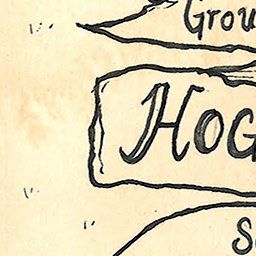 Grou
Hog
S